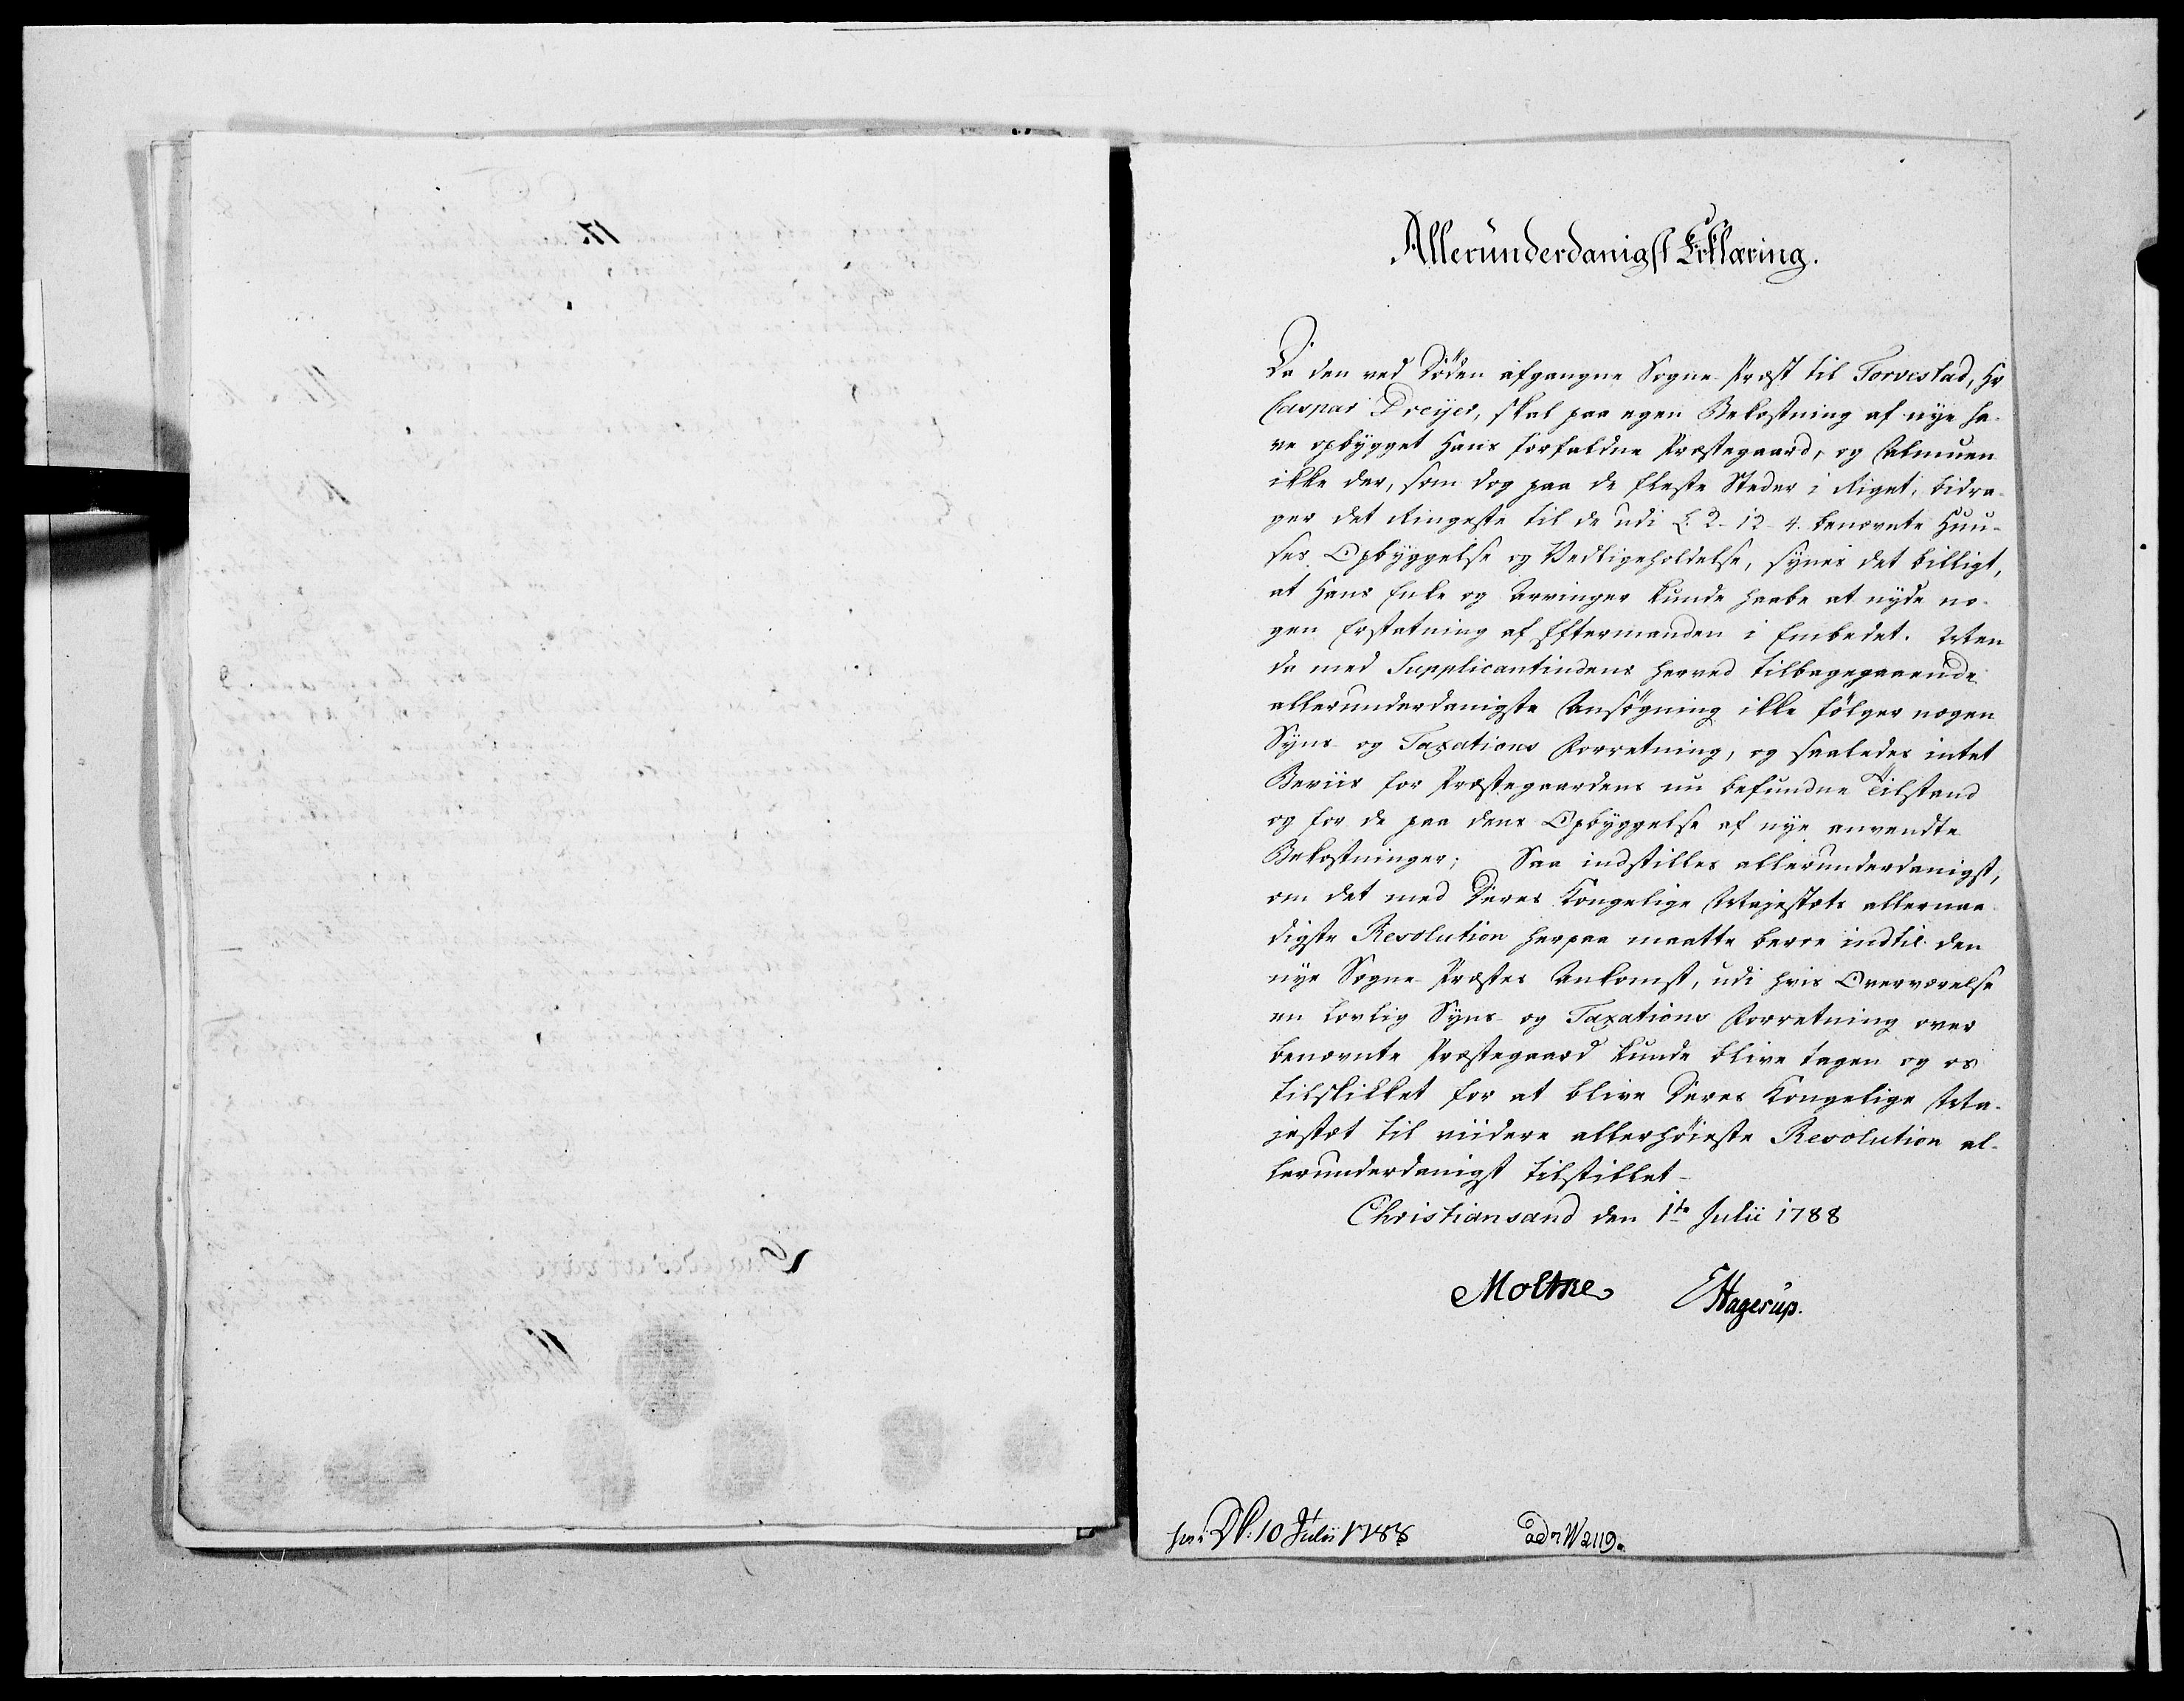 Alleründerdanigst Erklæring.
Da den ved Döden afgangne Sogne-Præst til Torvestad, Hr
Caspar Dreijer, skal paa egen Bekostning af nye ha-
ve opbygget Hans forfaldne Præstegaard, og Almuen
ikke der, som dog paa de fleste Steder i Riget, bidra-
ger det Ringeste til de udi L. 2-12-4. benævnte Huu-
ses Opbyggelse og Vedligeholdelse, synes det billigt,
at Hans Enke og Arvinger kunde haabe at nyde no-
gen Erstatning af Eftermanden i Embedet. Men
da med Supplicantindens herved tilbagegaaende
allerunderdanigste Ansögning ikke fölger nogen
Syns- og Taxations Forretning, og saaledes intet
Beviis for Præstegaardens nu befundne Tilstand
og for de paa dens Opbyggelse af nye anvendte
Bekostninger; Saa indstilles allerunderdanigst,
om det med Deres Kongelige Majestæts allernaa-
digste Resolution herpaa maatte beroe indtil den
nye Sogne-Præstes Ankomst, udi hvis Overværelse
en lovlig Syns- og Taxations Forretning over
benævnte Præstegaard kunde blive tagen og os
tilskikket for at blive Deres Kongelige Ma-
jestæt til viidere allerhöieste Resolution al-
lerunderdanigst tilstillet-
Christiansand den 1te Julii 1788
Moltke EHagerup.
10 Julii 1788 ad N 2119.